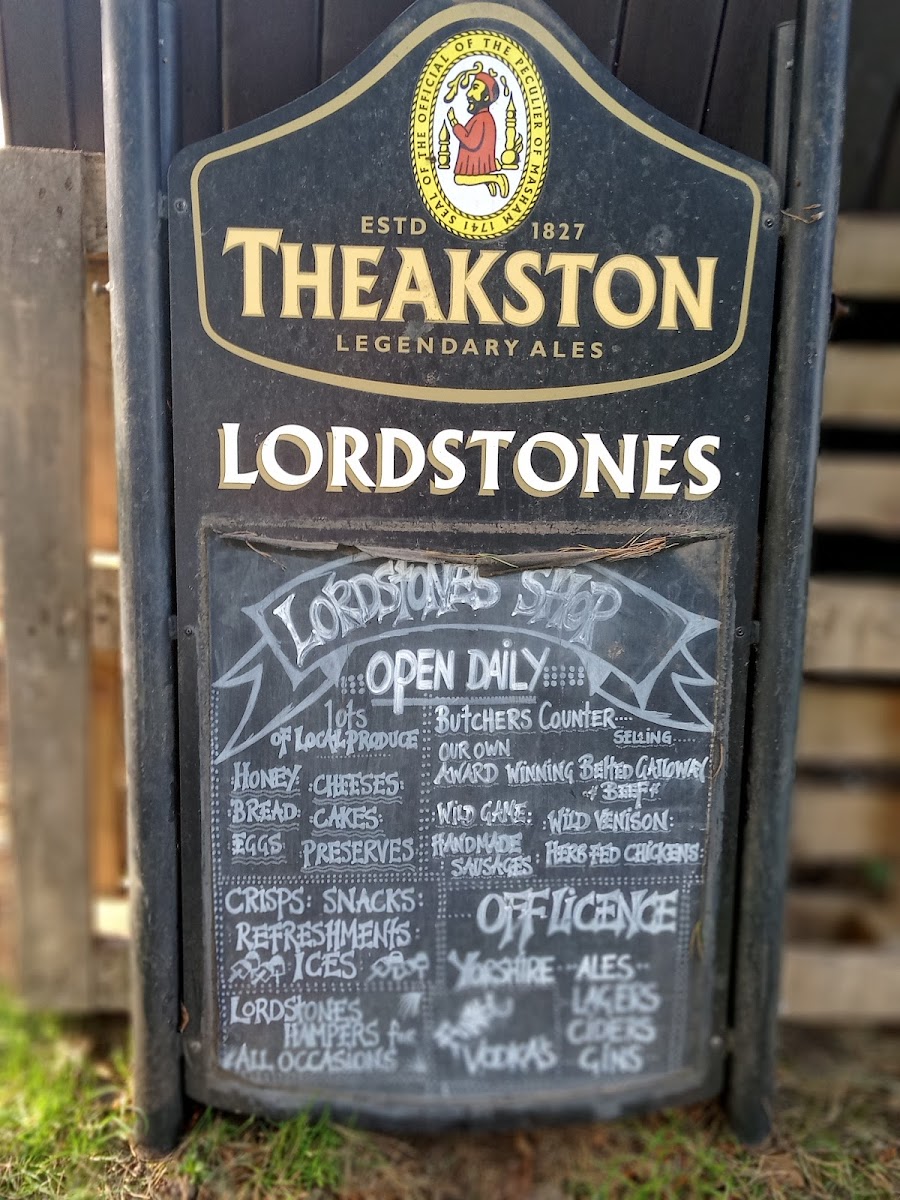 SEAL OF THE OFFICIAL OF THE PECULIER OF MASHAM 1741
ESTD 1827
THEAKSTON
LEGENDARY ALES
LORDSTONES
LORDSTONES SHOP
OPEN DAILY
lots
OF LOCAL PRODUCE
HONEY CHEESES
BREAD CAKES
EGGS PRESERVES
BUTCHERS COUNTER....
SELLING
OUR OWN
AWARD WINNING BELTED GALLOWAY
BEEF
WILD GAME WILD VENISON
HANDMADE
SAUSAGES
HERB FED CHICKENS
CRISPS SNACKS
REFRESHMENTS
ICES
LORDSTONES
HAMPERS for
ALL OCCASIONS
OFF LICENCE
YORSHIRE ALES
LAGERS
CIDERS
VODKAS GINS